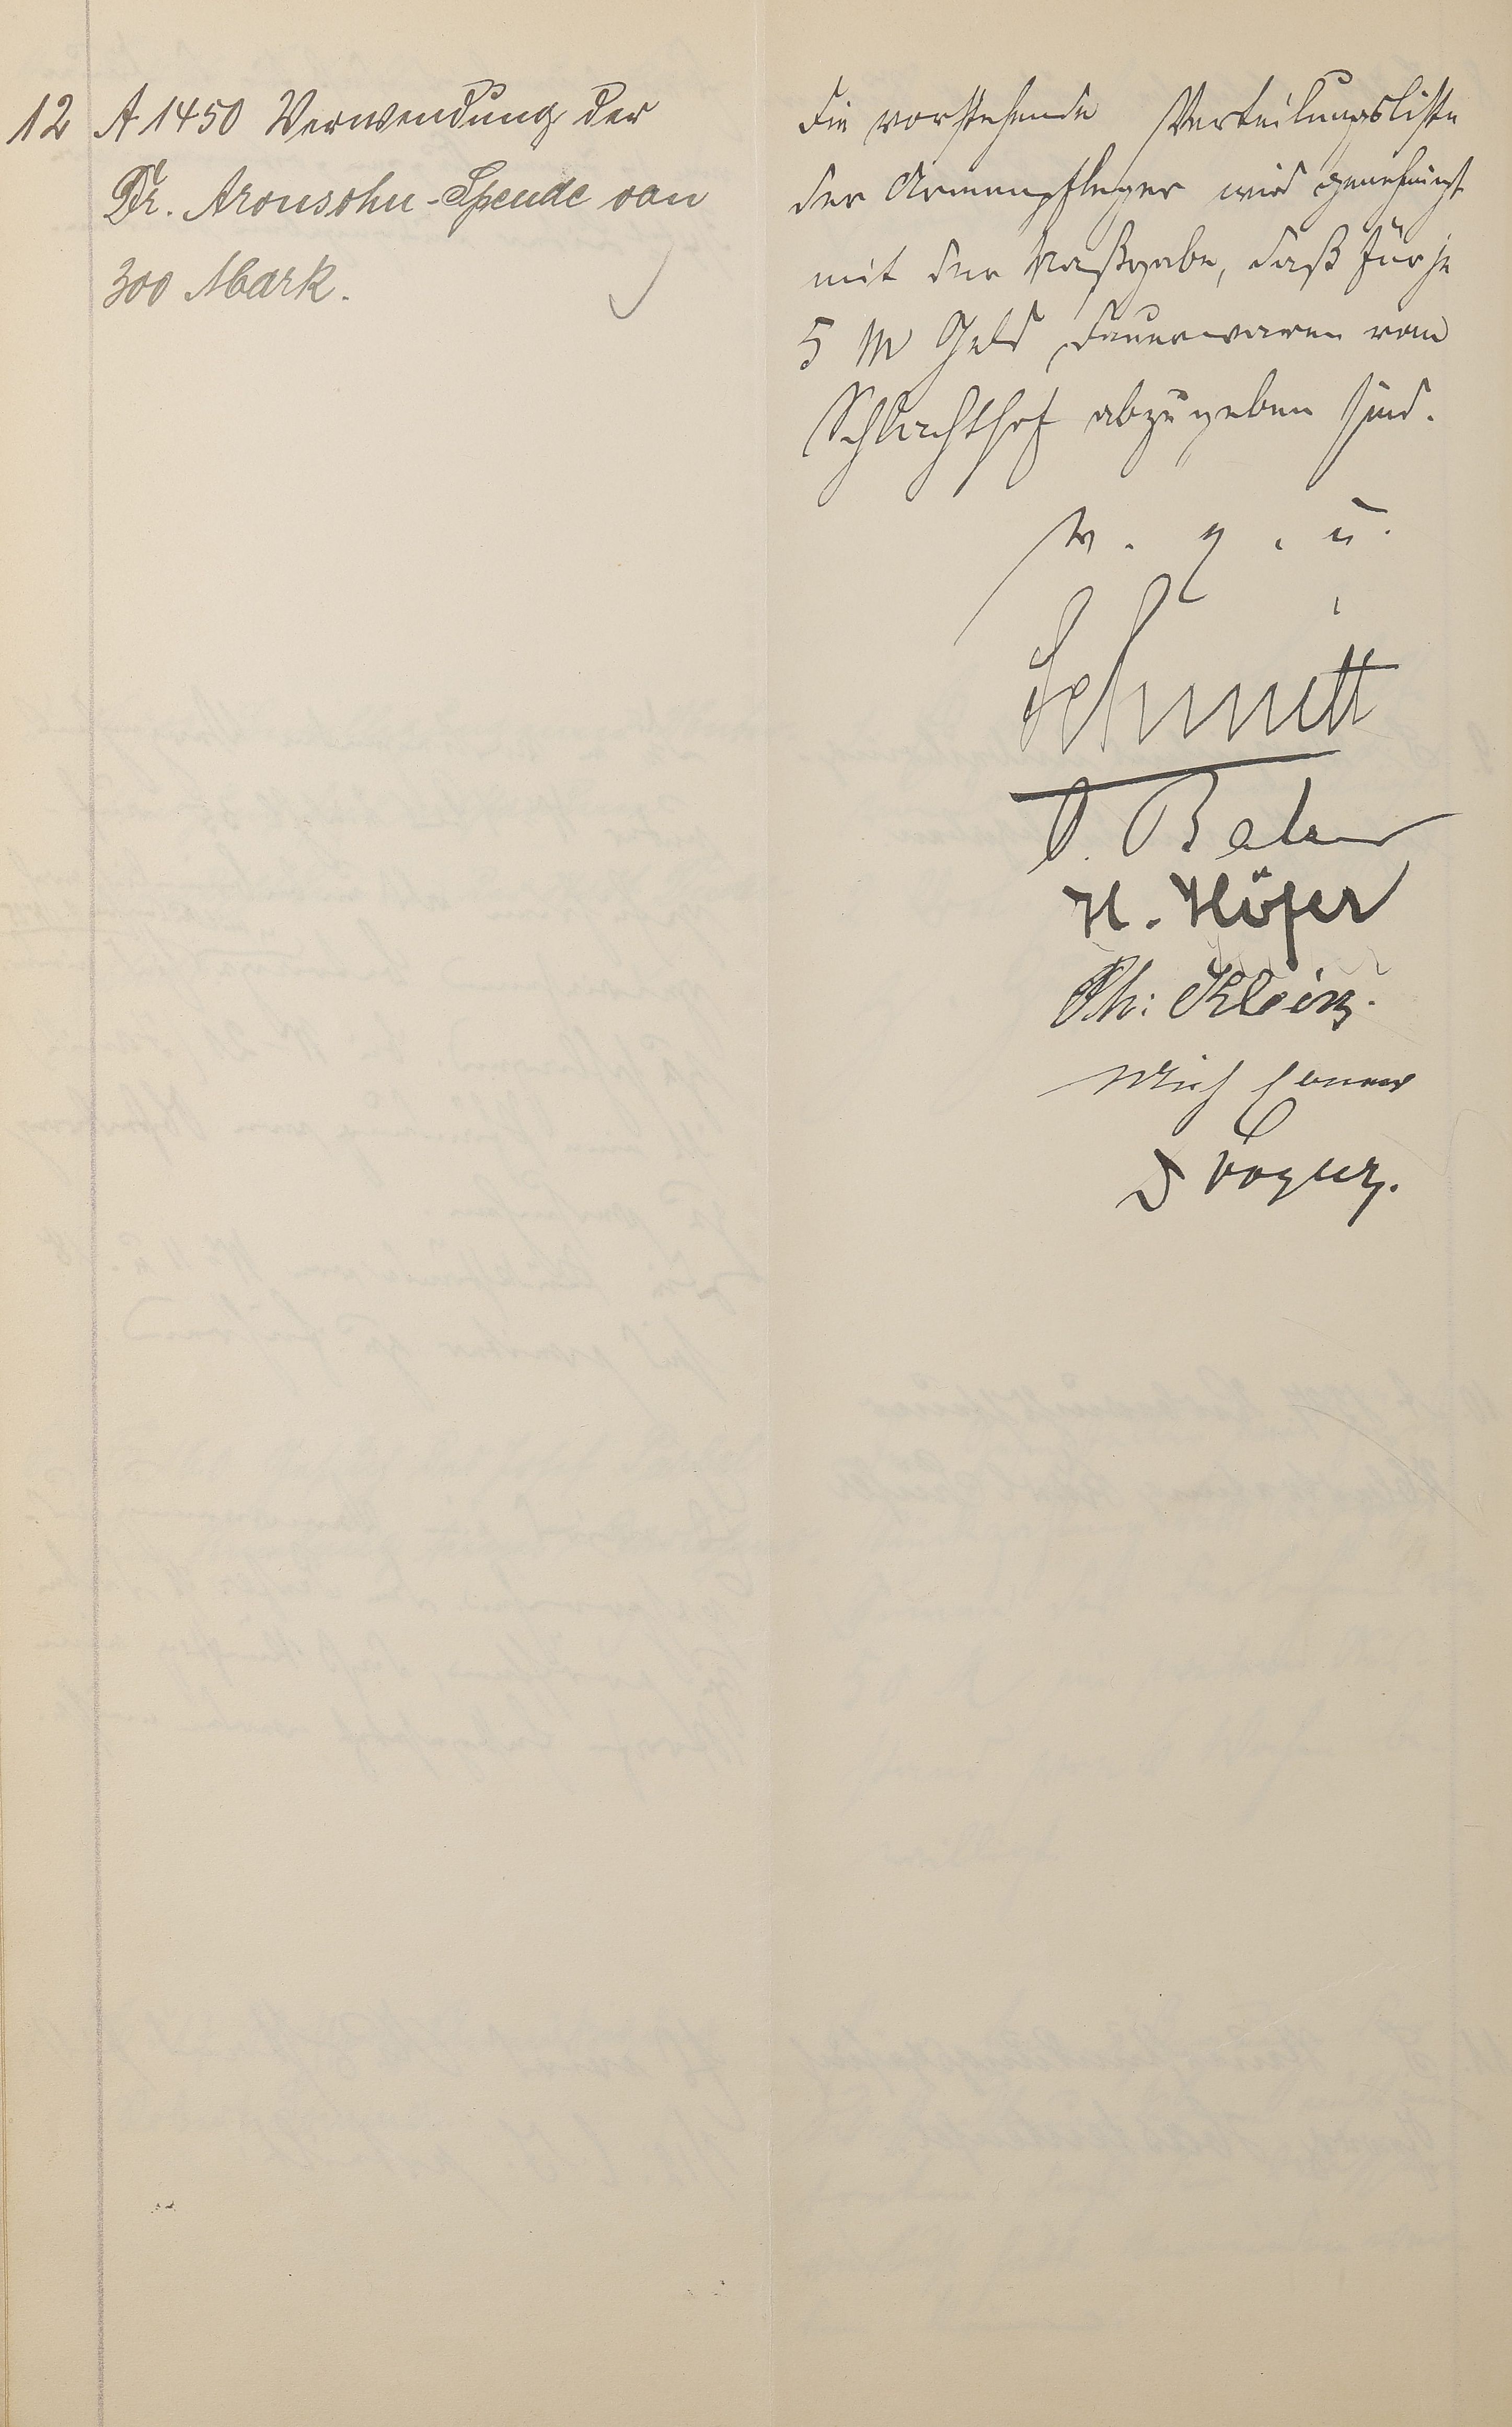 12 A 1450 Verwendung der
Dr. Aronsohn-Spende von
300 Mark.
Die vorstehende Verteilungsliste
der Armenpfleger wird genehmigt
mit der Maßgabe, daß für je
5 M Geld Dauerwaren vom
Schlachthof abzugeben sind.
v. g. u.
Schmitt
H. Höfer
Ph: Klein.